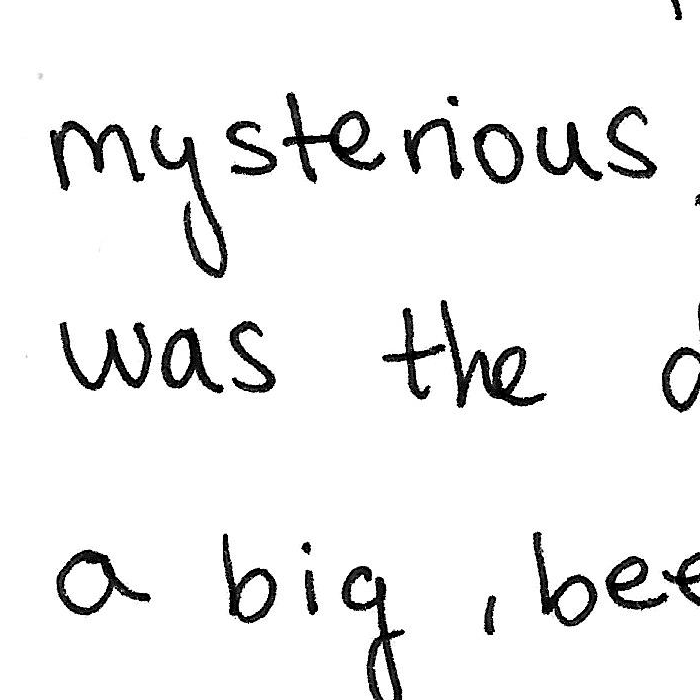 mysterious
was the
a big , bee